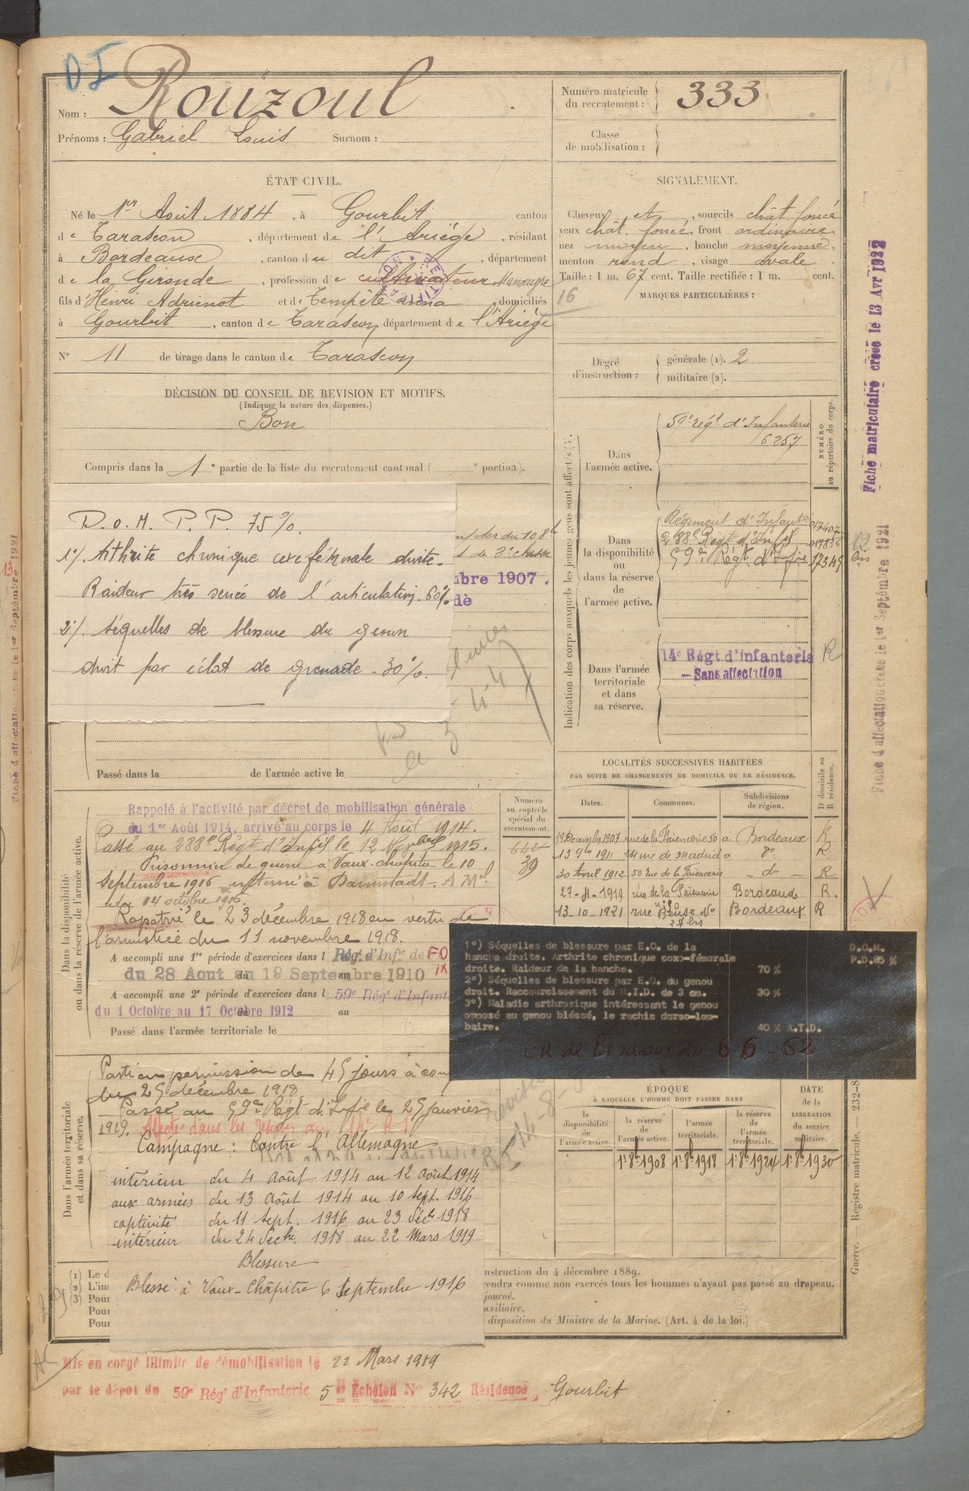 OI
Nom : Rouzoul
Prénoms : Gabriel Louis Surnom :
Numéro matricule du recrutement : 333
Classe de mobilisation :
ÉTAT CIVIL.
Né le 1er Août 1884, à Gourbit canton
de Tarascon, département de l'Ariège, résidant
à Bordeaux, canton du dit, département
de la Gironde, profession de cultivateur
fils d'Henri Adrienot et de Tempète domiciliés
à Gourbit, canton de Tarascon département de l'Ariège
N° 11 de tirage dans le canton de Tarascon
SIGNALEMENT.
Cheveux et, sourcils chât foncé
yeux chât. foncé, front ordinaire
nez moyen, bouche moyenne,
menton rond, visage ovale.
Taille : 1 m. 67 cent. Taille rectifiée : 1 m. cent.
16
MARQUES PARTICULIÈRES :
Degré d'instruction :
générale (1). 2
militaire (2).
DÉCISION DU CONSEIL DE REVISION ET MOTIFS.
(Indiquer la nature des dispenses.)
Bon
Compris dans la 1e partie de la liste du recrutement cantonal ( e portion).
D.o.M. P.P. 75 %.
1°/. Arthrite chronique coxo fémorale droite.
Raideur très serrée de l'articulation. 60%
2°/. Séquelles de blessure du genou
droit par éclat de grenade - 30%.
mbre 1907.
Passé dans la de l'armée active le
Indication des corps auxquels les jeunes gens sont affectés
NUMÉRO au répertoire du corps.
Dans l'armée active.
59e régt d'Infanterie
6257
Dans la disponibilité ou dans la réserve de l'armée active.
Régiment d'Infantie
288e Régt d'Infie
59e Régt d'Infie
Dans l'armée territoriale et dans sa réserve.
14e Régt d'Infanterie R
— Sans affectation
Fiche matriculaire créée le 13 Avr 1922
Fiche d'affectation créée le 1er Septembre 1921
LOCALITÉS SUCCESSIVES HABITÉES
PAR SUITE DE CHANGEMENTS DE DOMICILE OU DE RÉSIDENCE.
Dates. Communes. Subdivisions de région. D domicile ou R résidence.
1907 rue de la Faïencerie 50 à Bordeaux R
1911 rue de Madrid do R
30 Avril 1912 50 rue de la Faïencerie do R
1919 rue de la Faïencerie Bordeaux R.
13-10-1921 rue Bordeaux R
Dans la disponibilité ou dans la réserve de l'armée active.
Numéro au contrôle spécial du recrutement.
39
Rappelé à l'activité par décret de mobilisation générale
du 1er Août 1914, arrivé au corps le 4 Août 1914.
Passé au 288e Régt d'Infie le 12 1915.
Prisonnier de guerre à Vaux-chapitre le 10
Septembre 1916 interné à Darmstadt - A Mel
du 14 octobre 1916.
Rapatrié le 23 décembre 1918 en vertu de
l'armistice du 11 novembre 1918.
A accompli une 1re période d'exercices dans l Régt d'Infie de
du 28 Aout au 19 Septembre 1910
A accompli une 2e période d'exercices dans l 59e Régt d'Infant
du 1 Octobre au 17 Octobre 1912 au
Passé dans l'armée territoriale le
1°) Séquelles de blessure par E.O. de la
hanche droite. Arthrite chronique coxo-fémorale
droite. Raideur de la hanche. 70 %
2°) Séquelles de blessure par E.O. du genou
droit. Raccourcissement du M.I.D. de 3 cm. 30 %
3°) Maladie arthrosique intéressant le genou
opposé au genou blessé, le rachis dorso-lom-
baire. 40 % A.T.D.
D.O.M.
P.D. 95 %
CR de Bordeaux du 6 6 - 62
Dans l'armée territoriale et dans sa réserve.
Parti en permission de 45 jours à
du 25 décembre 1918
Passé au 59e Régt d'Infie le 25 Janvier
1919.
Campagne : Contre l'Allemagne
intérieur du 4 août 1914 au 12 Août 1914
aux armées du 13 Août 1914 au 10 sept. 1916
captivité du 11 Sept. 1916 au 23 Déc. 1918
intérieur du 24 Déc. 1918 au 22 Mars 1919
Blessure
Blessé à Vaux-Chapitre 6 Septembre 1916
ÉPOQUE
À LAQUELLE L'HOMME DOIT PASSER DANS
la disponibilité de l'armée active.
la réserve de l'armée active.
l'armée territoriale.
la réserve de l'armée territoriale.
DATE de la LIBÉRATION du service militaire.
1er 8bre 1908 1er 8bre 1918 1er 8bre 1924 1er 8bre 1930
(1) Le d
(2) L'in
(3) Pour
Pour
Pour
nstruction du 4 décembre 1889.
endra comme non exercés tous les hommes n'ayant pas passé au drapeau.
journé.
uxiliaire.
disposition du Ministre de la Marine. (Art. 4 de la loi.)
Guerre. — Registre matricule. — 232-8
Mis en congé illimité de démobilisation le 22 Mars 1919
par le dépôt du 59e Régt d'Infanterie 5e Echelon N° 342 Résidence, Gourbit